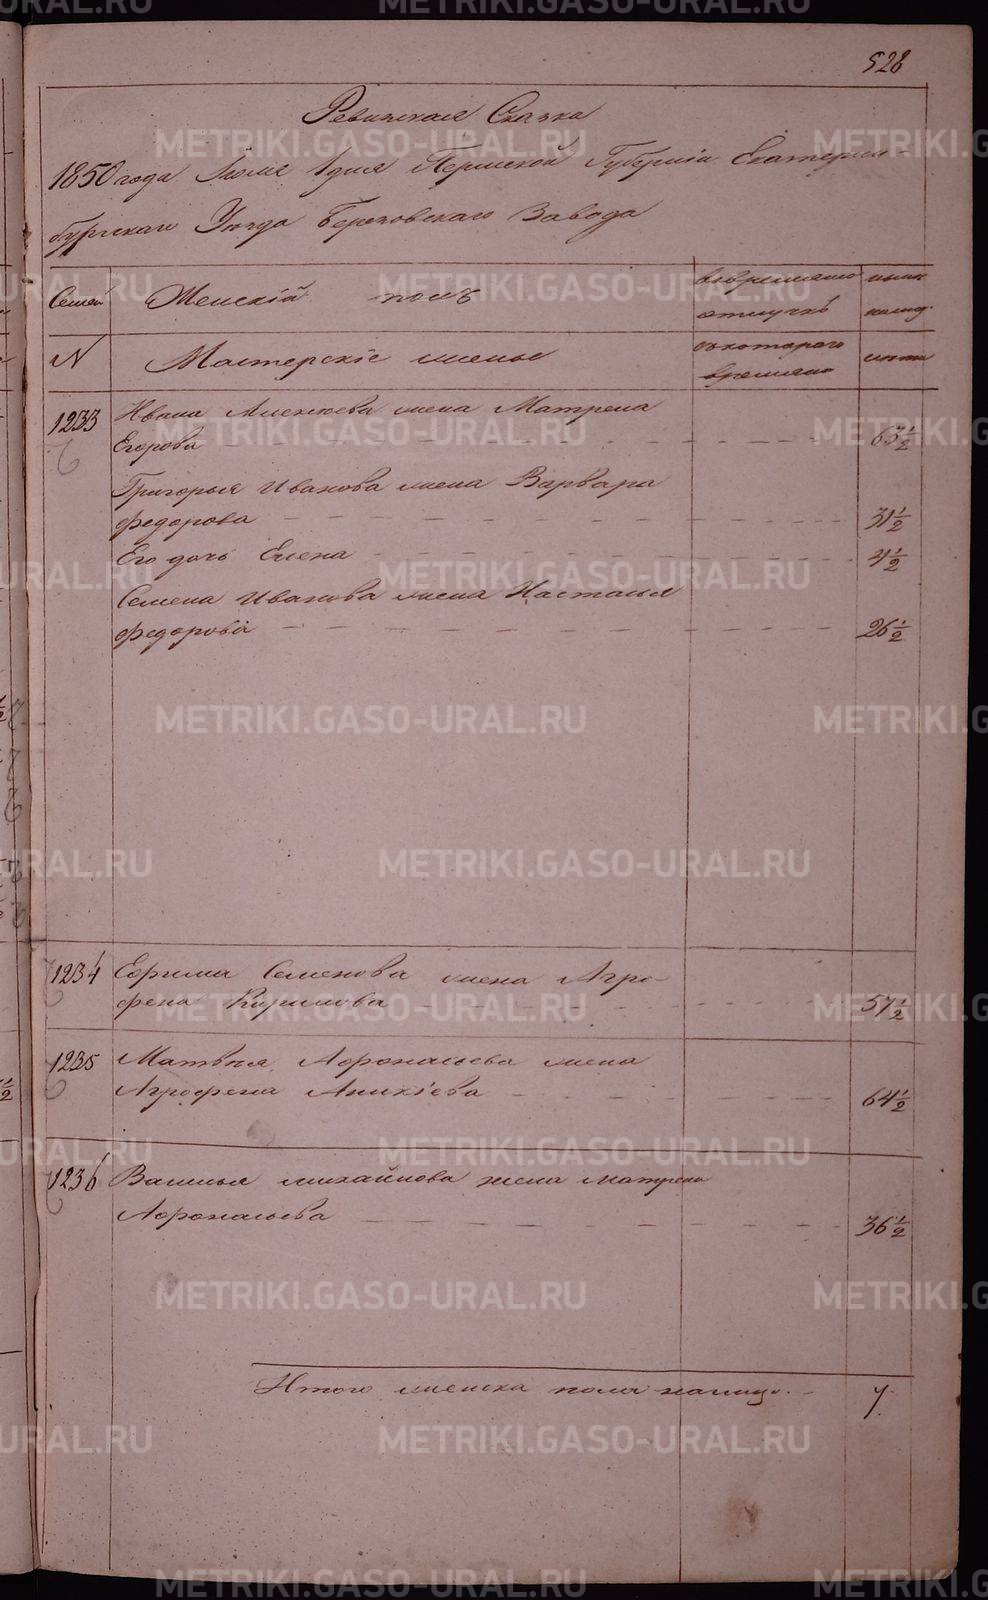 528
Ревижская Сказка
1850 года Июля 1 дня Пермской Губернiи Екатерин-
бургскаго Уезда Березовскаго Завода
Семей Женскiй полъ во временно ныне
отлучкѣ налицо
N Мастерскiе жены съ котораго лета
времяни
1233 Ивана Алексеева жена Матрена
Егорова 63 1/2
Григорья Иванова жена Варвара
федорова 31 1/2
Его дочь Елена 4 1/2
Семена Иванова жена Настасья
федорова 26 1/2
1234 Ефима Семенова жена Агро-
фена Кирилова 57 1/2
1235 Матвея Афонасьева жена
Агрофена Аникiева 64 1/2
1236 Василья михайлова жена матрена
Афонасьева 36 1/2
Итого женска пола налицо 7
METRIKI.GASO-URAL.RU